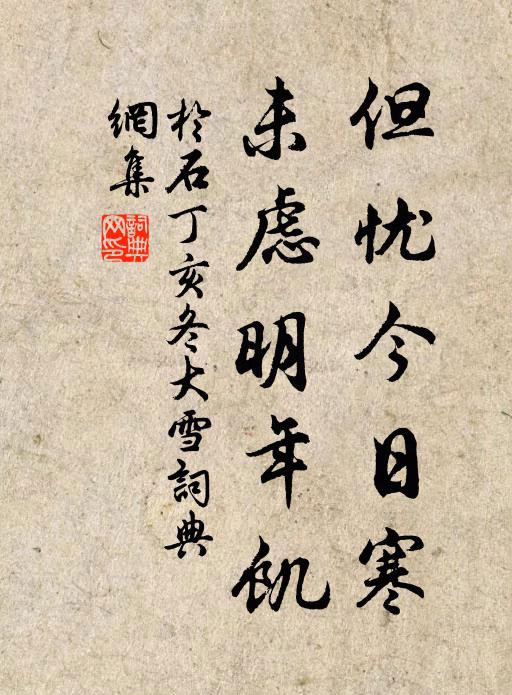 但忧今日寒
未虑明年飢
於石丁亥冬大雪詞典
網集
詞典
网印